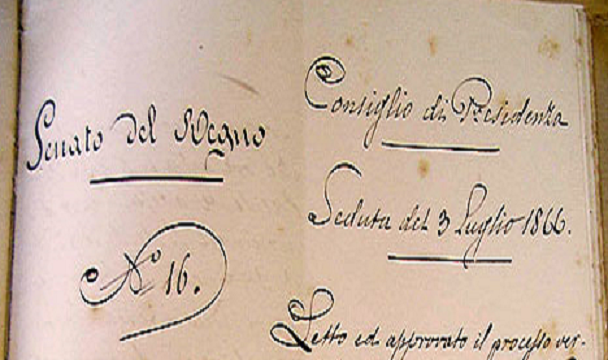 Senato del Regno
N.º 16.
Consiglio di Presidenza
Seduta del 3 Luglio 1866.
Letto ed approvato il processo ver-